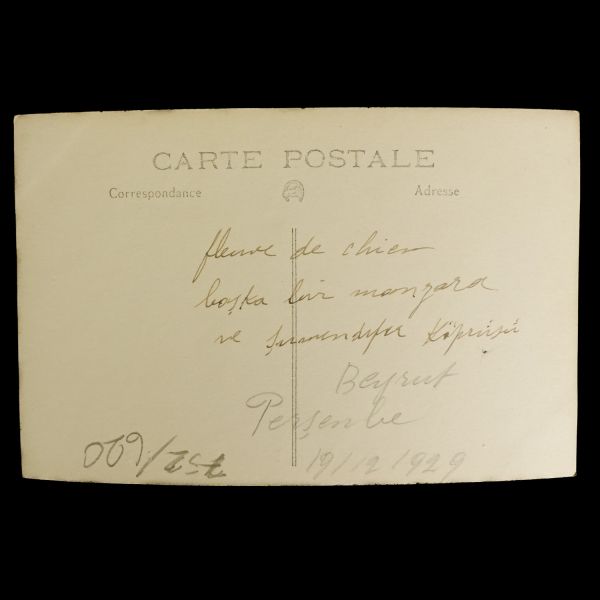 CARTE POSTALE
Correspondance
Adresse
fleuve de chien
başka bir manzara
ve şumendifer Köprüsü
Beyrut
Perşenbe
19/12 1929